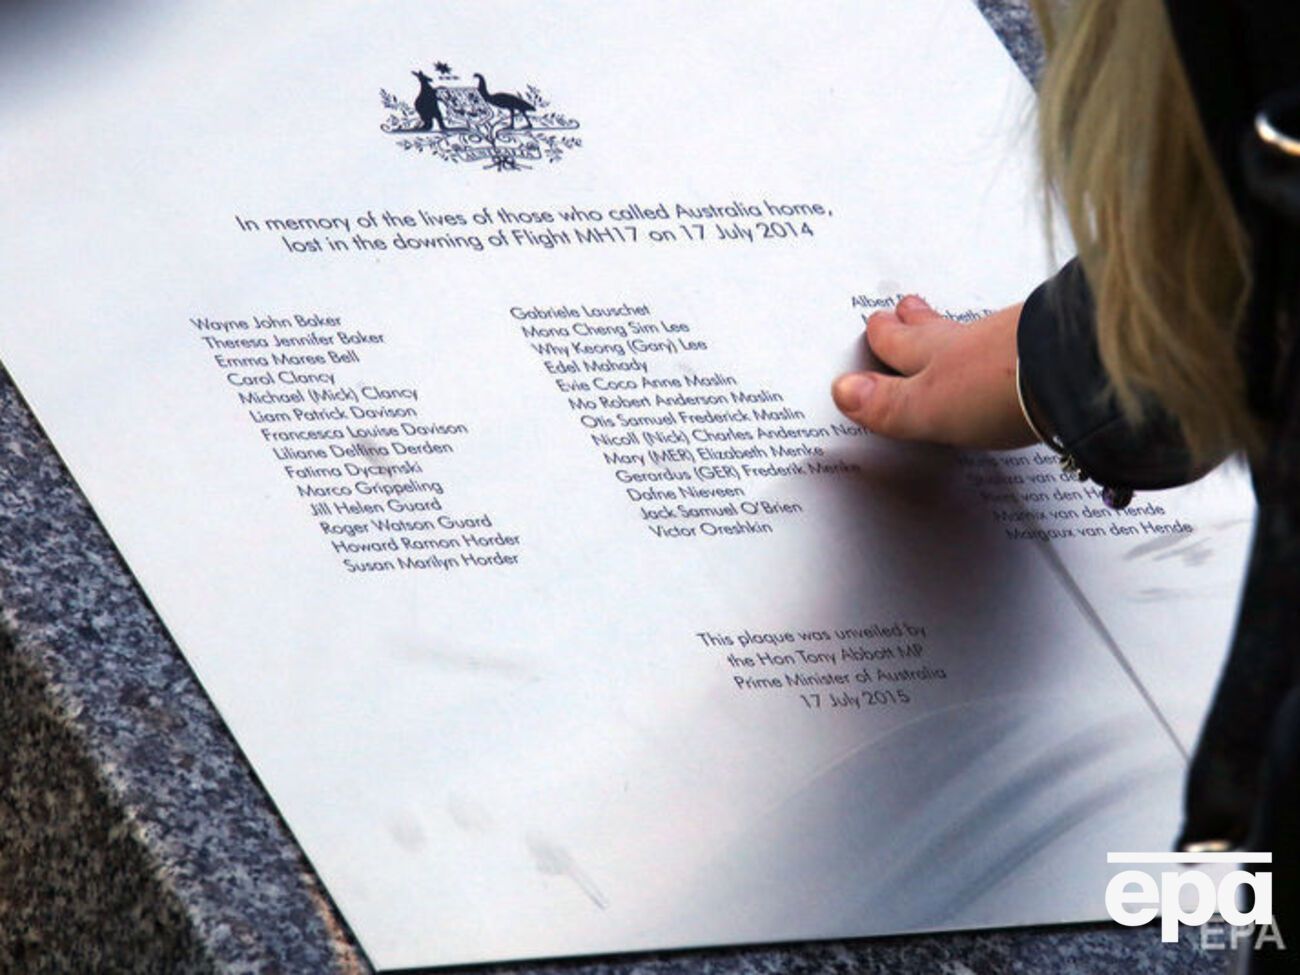 AUSTRALIA
In memory of the lives of those who called Australia home,
lost in the downing of Flight MH17 on 17 July 2014
Wayne John Baker
Theresa Jennifer Baker
Emma Maree Bell
Carol Clancy
Michael (Mick) Clancy
Liam Patrick Davison
Francesca Louise Davison
Liliane Delfina Derden
Fatima Dyczynski
Marco Grippeling
Jill Helen Guard
Roger Watson Guard
Howard Ramon Horder
Susan Marilyn Horder
Gabriele Lauschet
Mona Cheng Sim Lee
Why Keong (Gary) Lee
Edel Mahady
Evie Coco Anne Maslin
Mo Robert Anderson Maslin
Otis Samuel Frederick Maslin
Nicoll (Nick) Charles Anderson
Mary (MER) Elizabeth Menke
Gerardus (GER) Frederik Menke
Dafne Nieveen
Jack Samuel O'Brien
Victor Oreshkin
Albert
van der
van den
van den
Marnix van den Hende
Margaux van den Hende
This plaque was unveiled by
the Hon Tony Abbott MP
Prime Minister of Australia
17 July 2015
epa
EPA